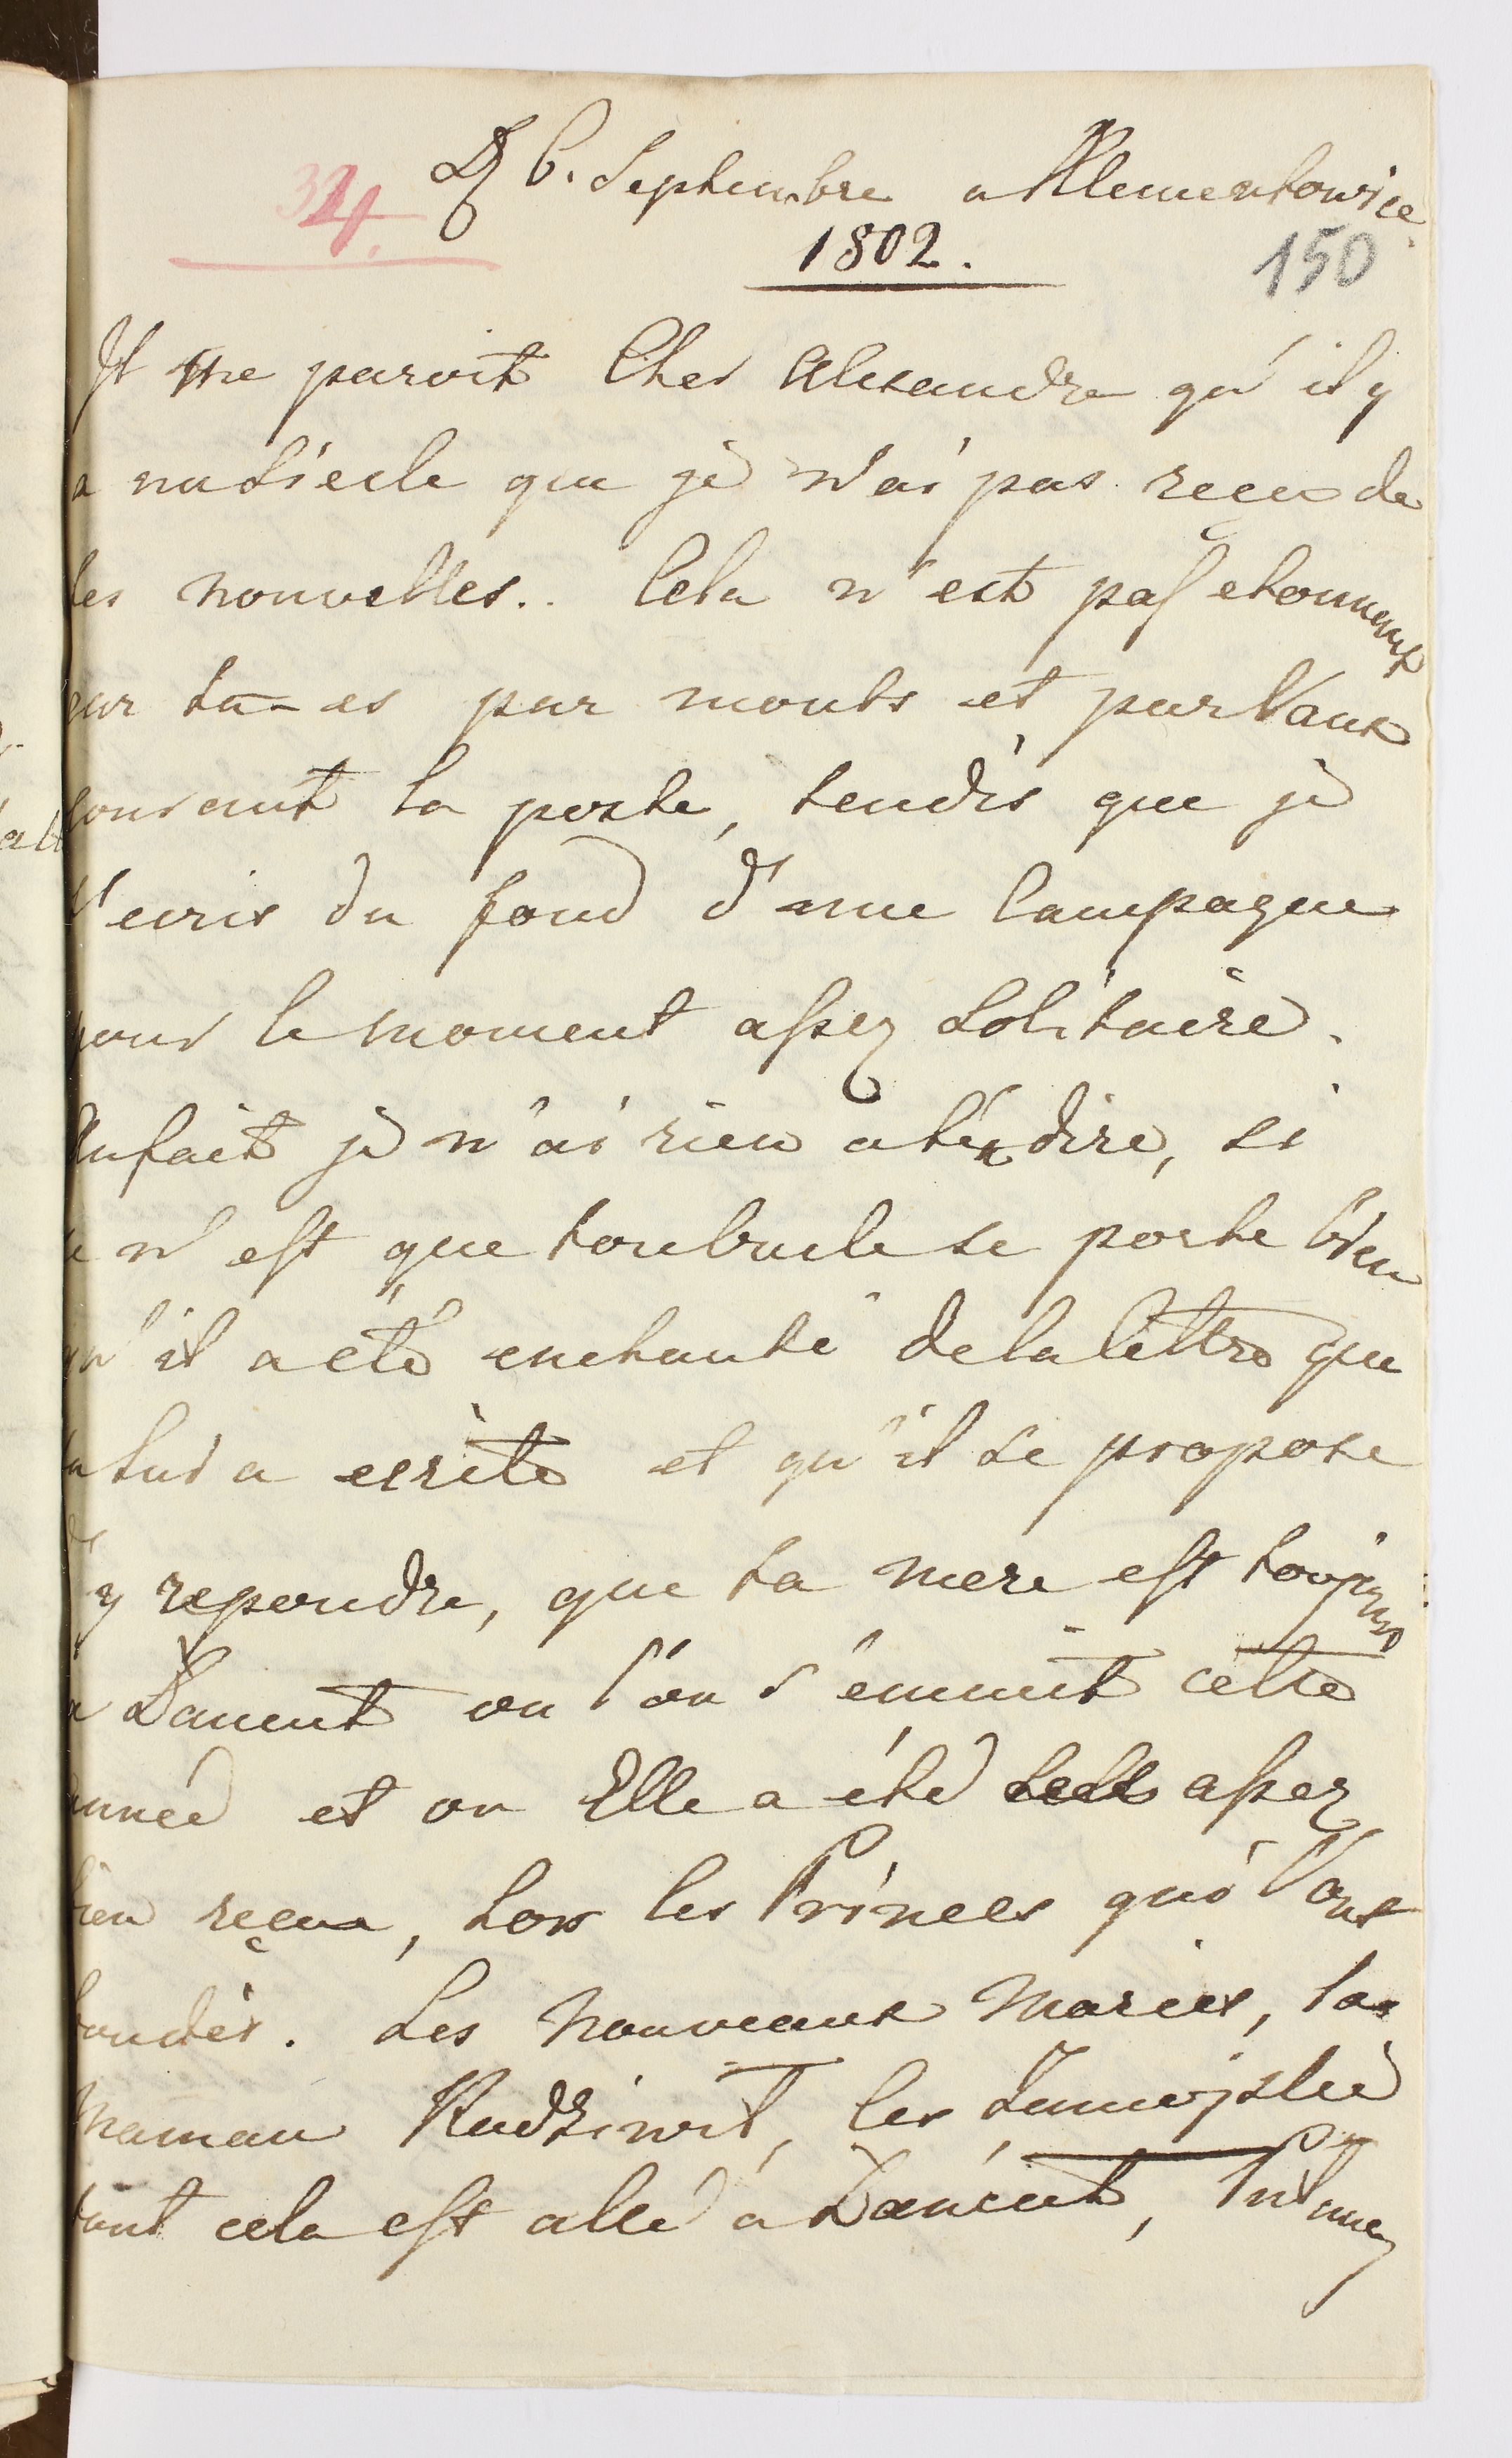 34.
D 6. Septembre a Klementowice
1802.
150
Il me paroit Cher Alexandre qu'il y
a un Siecle que je n'ai pas reçu de
tes nouvelles.. Cela n'est pas etonnent
car tu es par monts et par Vaux
courant la poste, tendis que je
t'ecris du fond d'une Campagne
pour le moment assez Solitaire.
Aufait je n'ai rien a te dire, si
ce n'est que ton Oncle se porte bien
qu'il a eté enchanté de la lettre que
tu lui a ecrite et qu'il se propose
d'y repondre, que ta mere est toujours
a Lancut ou l'on s'ennuit cette
année et ou Elle a été assez
bien reçue, les Princes qui l'ont
boudés. Les Nouveaux Mariés, la
Maman Radziwił, les Zamojskie
tout cela est allé a Łancut,